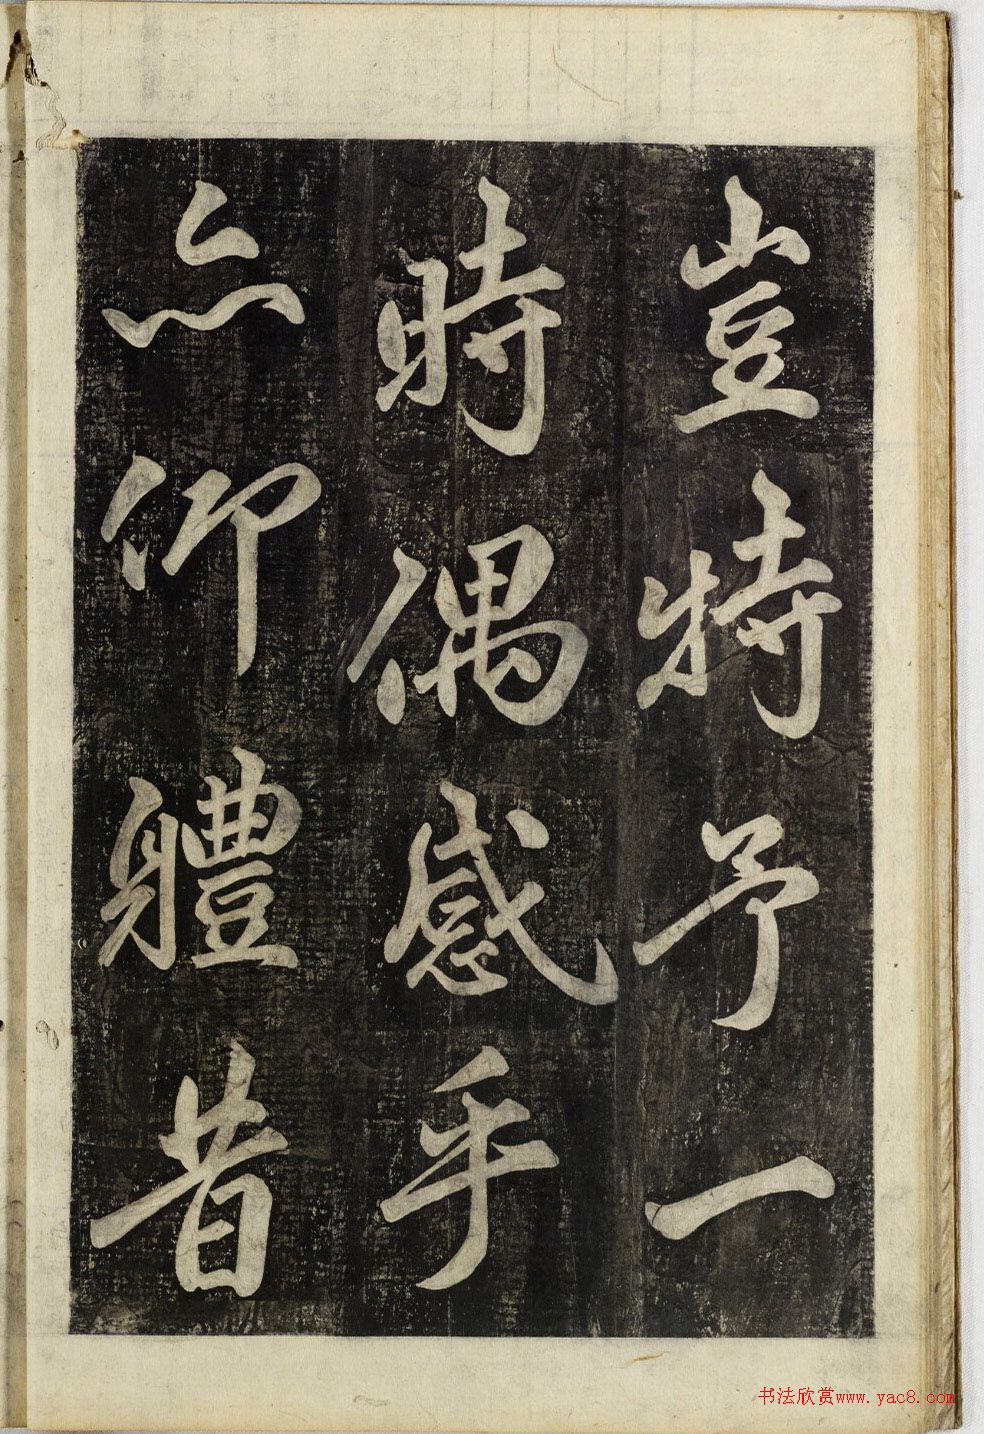 豈特予一
時偶感乎
亦仰體昔
书法欣赏www.yac8.com